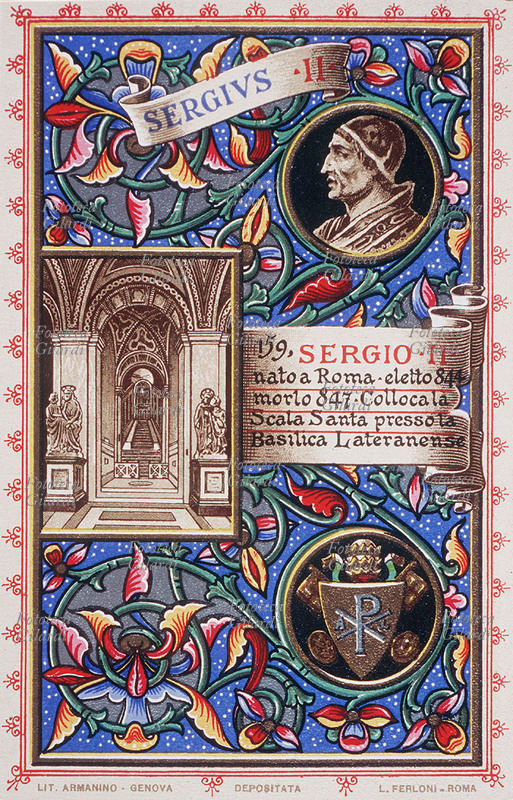 SERGIVS ·II·
159, SERGIO·II
nato a Roma·eletto 844
morto 847·Colloca la
Scala Santa presso la
Basilica Lateranense
A P Ω
LIT. ARMANINO - GENOVA DEPOSITATA L. FERLONI - ROMA
Fototeca
Gilardi